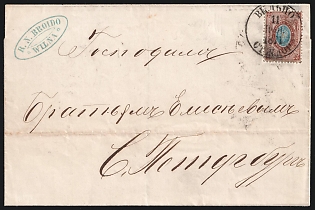 R. N. BROIDO
WILNA
ВИЛЬНО
11
Господамъ
Братьямъ Елисѣевымъ
С. Петербургъ